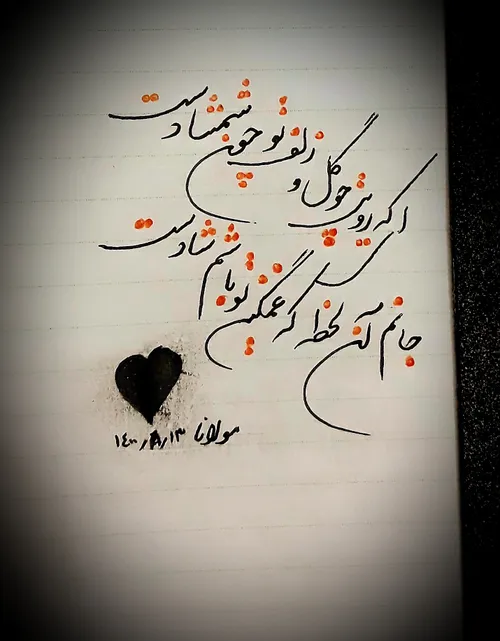 ای که رویت چو گل و زلف تو چون شمشادست
جانم آن لحظه که غمگین تو باشم شادست
مولانا ۱۴۰۰/۸/۱۳